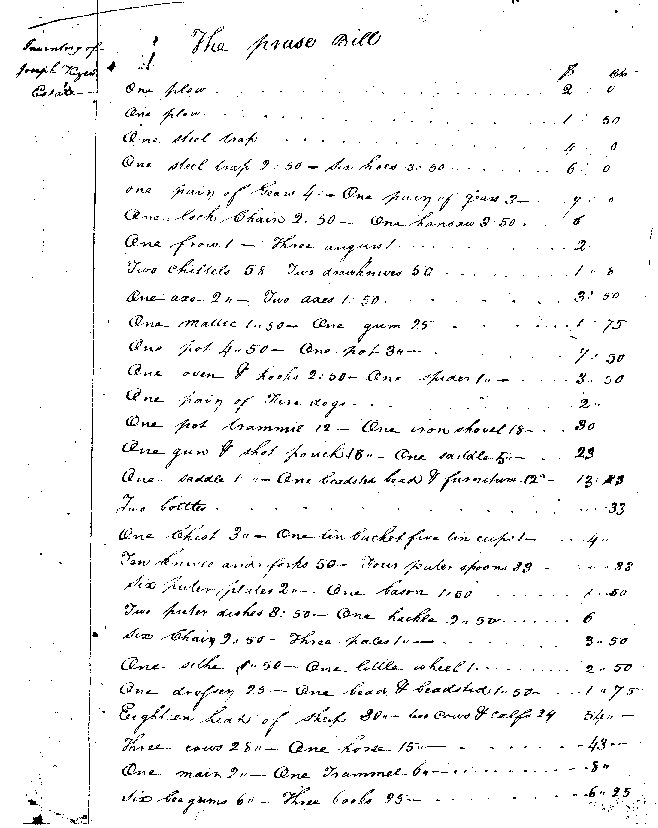 Inventory of
Joseph
Estate
The prase Bill
$ Cts
One plow 2 0
One plow 1 50
One steel trap 4 0
One steel trap 2:50 – Six hoes 3:50 6 0
one pair of Gears 4 – One pair of gears 3 – 7 0
One lock Chain 2.50 – One hansaw 3.50 6
One frow 1 – Three augurs 1 2
Two chissels 58 Two drawknives 50 1 " 8
One axe 2 " – Two axes 1.50 3: 50
One mattec 1.50 – One gum 25 1 75
One pot 4 " 50 – One pot 3 " – 7: 50
One oven & hooks 2:50 – One spider 1 " – 3 50
One pair of Fire dogs 2 "
One pot trammil 12 – One iron shovel 18 – 30
One gun & shot pouch 18 " – One saddle 5 " – 23
One saddle 1 " – One beadsted bead & furniture 12 " – 13: 23
Two bottles 33
One Chest 3 " – One tin bucket five tin cups 1 – 4 "
Ten knives and forks 50 – Four puter spoons 33 83
Six puter plates 2 " – One bason 1:50
Two puter dishes 3:50 – One hackle 2 " 50 – 6
Six Chairs 2.50 – Three pales 1 " – 3 " 50
One sithe 1 " 50 – One little wheel 1 2 " 50
One 25 – One bead & beadsted 1 " 50 – 1 " 75
Eighteen head of sheep 30 " – two cows & calfs 24 54 " –
Three cows 28 " – One horse 15 " – 43 " –
One 2 " – One Trammel 6 " – 8 "
Six bee gums 6 " – Three books 25 – 6 " 25